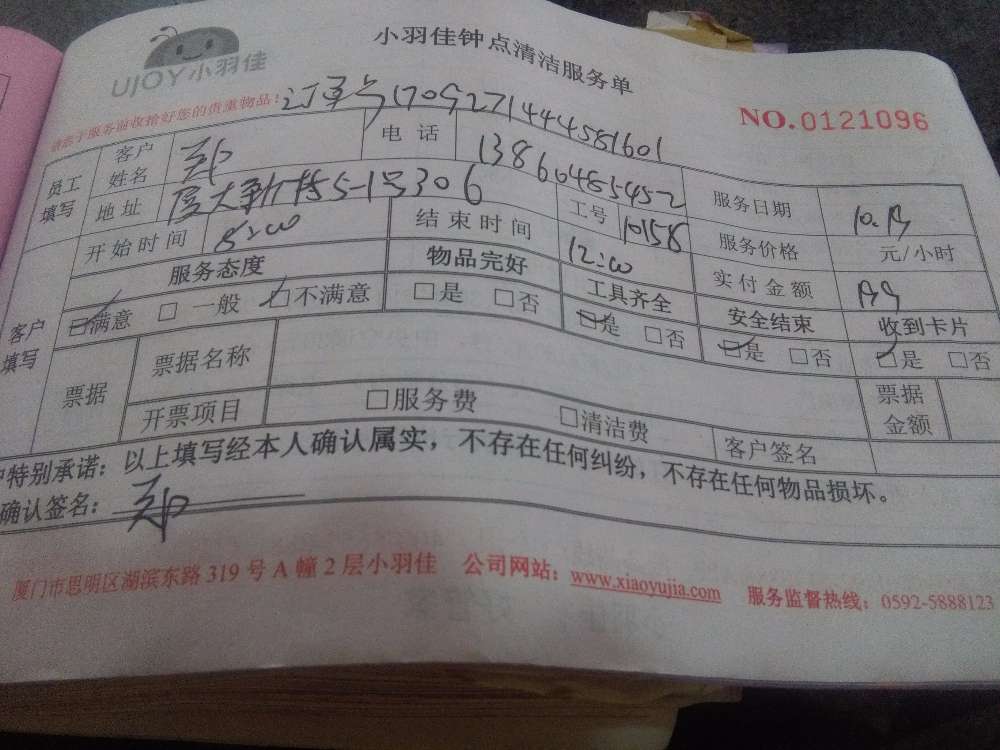 UJOY小羽佳
小羽佳钟点清洁服务单
请您于服务前收拾好您的贵重物品:
订单号1709271444581601
NO.0121096
员工填写 客户姓名 郑 电话 13860485452 服务日期
地址 厦大 5-1号306 工号 10158 服务价格 元/小时
开始时间 8:00 结束时间 12:00 实付金额
客户填写 服务态度 物品完好 工具齐全 安全结束 收到卡片
满意 一般 不满意 是 否 是 否 是 否 是 否
票据 票据名称 票据金额
开票项目 服务费 清洁费 客户签名
户特别承诺:以上填写经本人确认属实,不存在任何纠纷,不存在任何物品损坏。
确认签名: 郑
厦门市思明区湖滨东路319号A幢2层小羽佳 公司网站:www.xiaoyujia.com 服务监督热线:0592-5888123